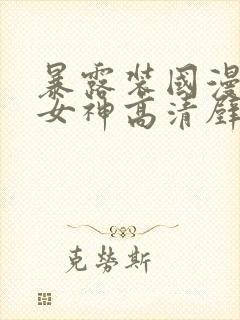 暴露装国漫
女神高清壁
克劳斯